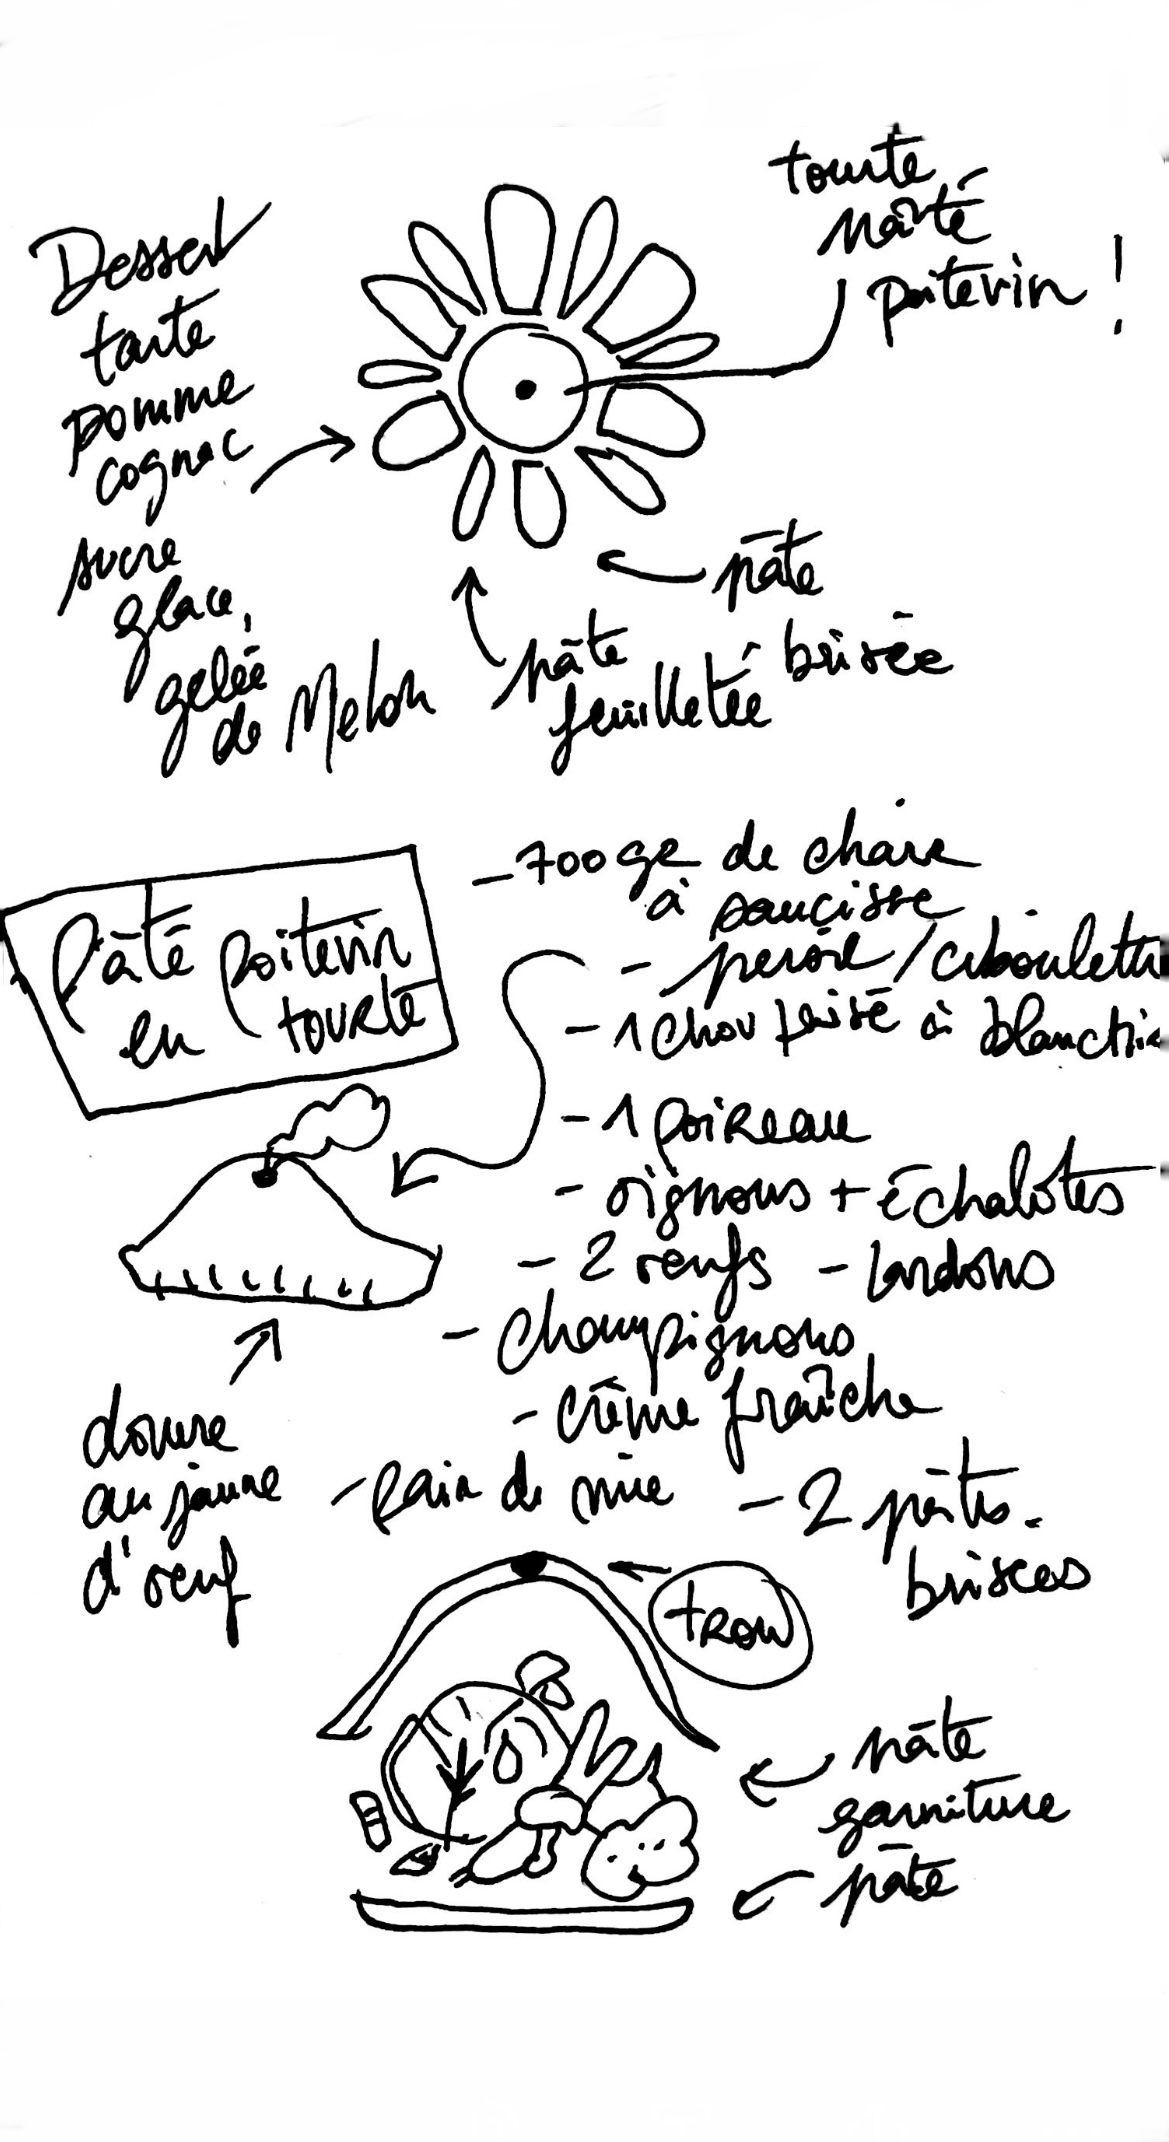 tourte
pâté
poitevin !
Dessert
tarte
pomme
cognac
sucre
glace,
gelée
de Melon
pâte
brisée
pâte
feuilletée
Pâté poitevin
en tourte
- 700 gr de chair
à saucisse
- persil / ciboulette
- 1 chou frisé à blanchir
- 1 poireau
- oignons + échalotes
- 2 oeufs - lardons
- champignons
- crème fraîche
- pain de mie - 2 pâtes
brisées
dorure
au jaune
d'oeuf
trou
pâte
garniture
pâte